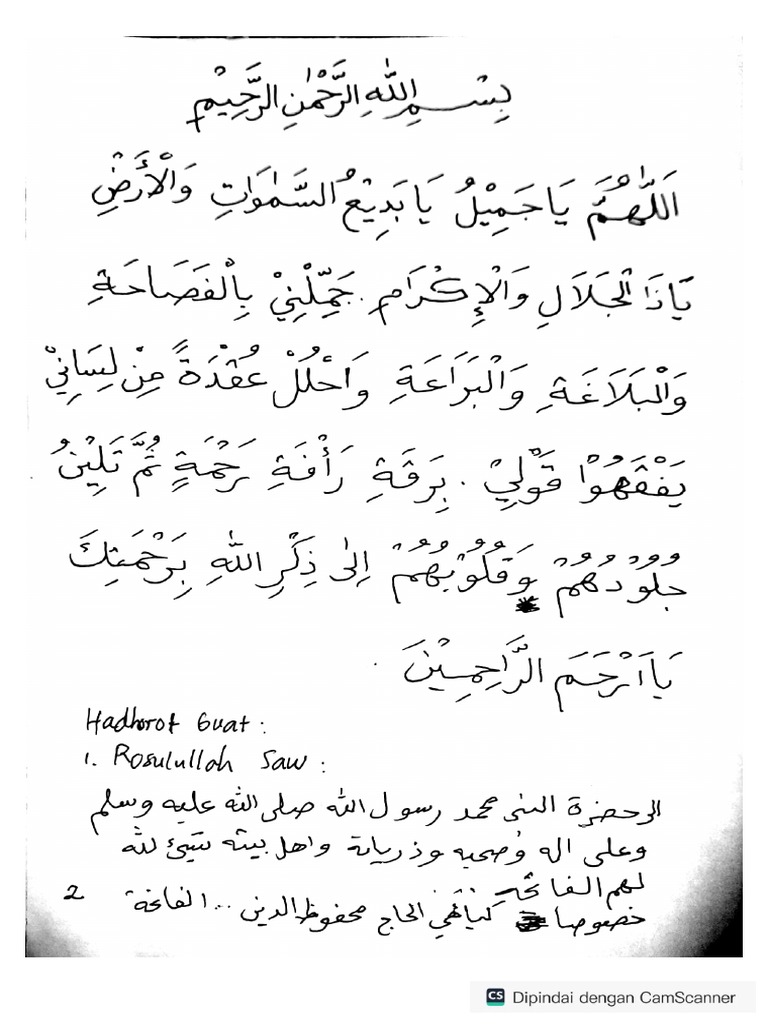 بِسْمِ اللّٰهِ الرَّحْمٰنِ الرَّحِيْمِ
اَللّٰهُمَّ يَا جَمِيْلُ يَا بَدِيْعُ السَّمٰوَاتِ وَالْأَرْضِ
يَاذَا الْجَلَالِ وَالْإِكْرَامِ. جَمِّلْنِيْ بِالْفَصَاحَةِ
وَالْبَلَاغَةِ وَالْبَرَاعَةِ وَاحْلُلْ عُقْدَةً مِنْ لِسَانِيْ
يَفْقَهُوْا قَوْلِيْ. بِرَقَةِ رَأْفَةِ رَحْمَةٍ ثُمَّ تَلِيْنُ
جُلُوْدُهُمْ وَقُلُوْبُهُمْ اِلٰى ذِكْرِ اللّٰهِ بِرَحْمَتِكَ
يَا اَرْحَمَ الرَّاحِمِيْنَ.
Hadhorot Guat :
1. Rosulullah Saw :
الى حضرة النبى محمد رسول الله صلى الله عليه وسلم
وعلى اله وصحبه وذرياته واهل بيته شيئ لله
لهم الفاتحة
2 خصوصا كياهي الحاج محفوظ الدين ... الفاتحة
CS Dipindai dengan CamScanner